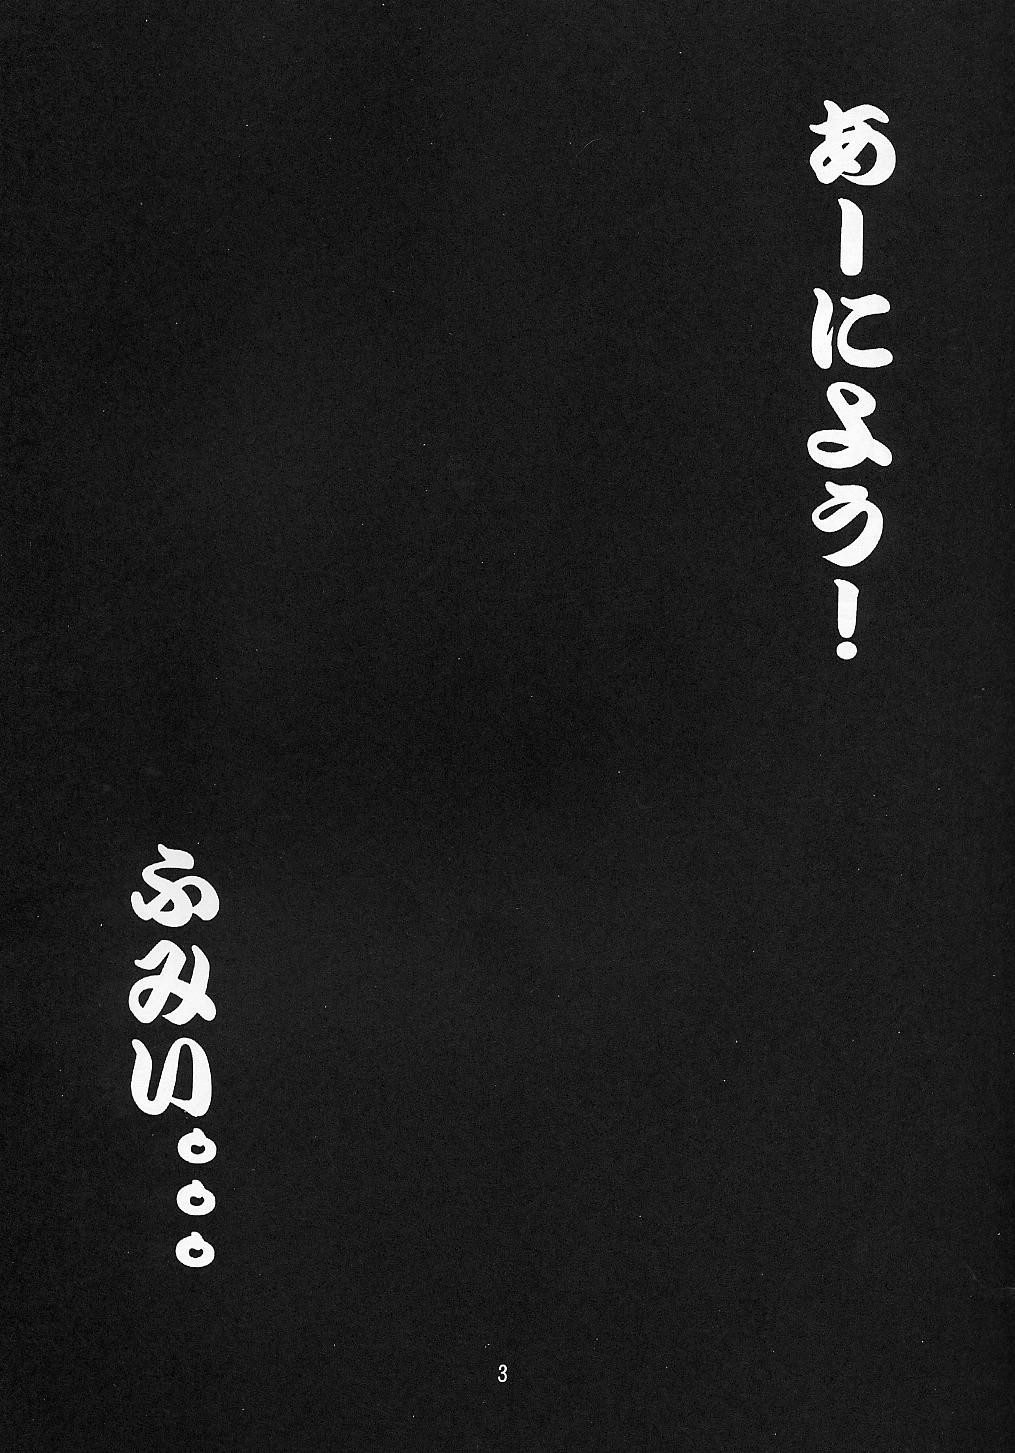 あーにょう！
ふみい。。。
3